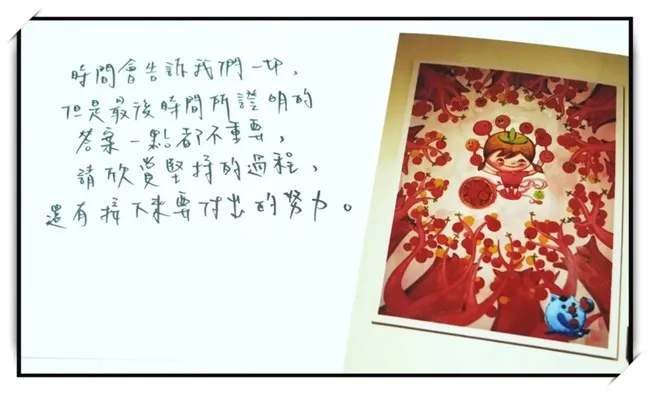 時間會告訴我們一切，
但是最後時間所證明的
答案一點都不重要，
請欣賞堅持的過程，
還有接下來要付出的努力。